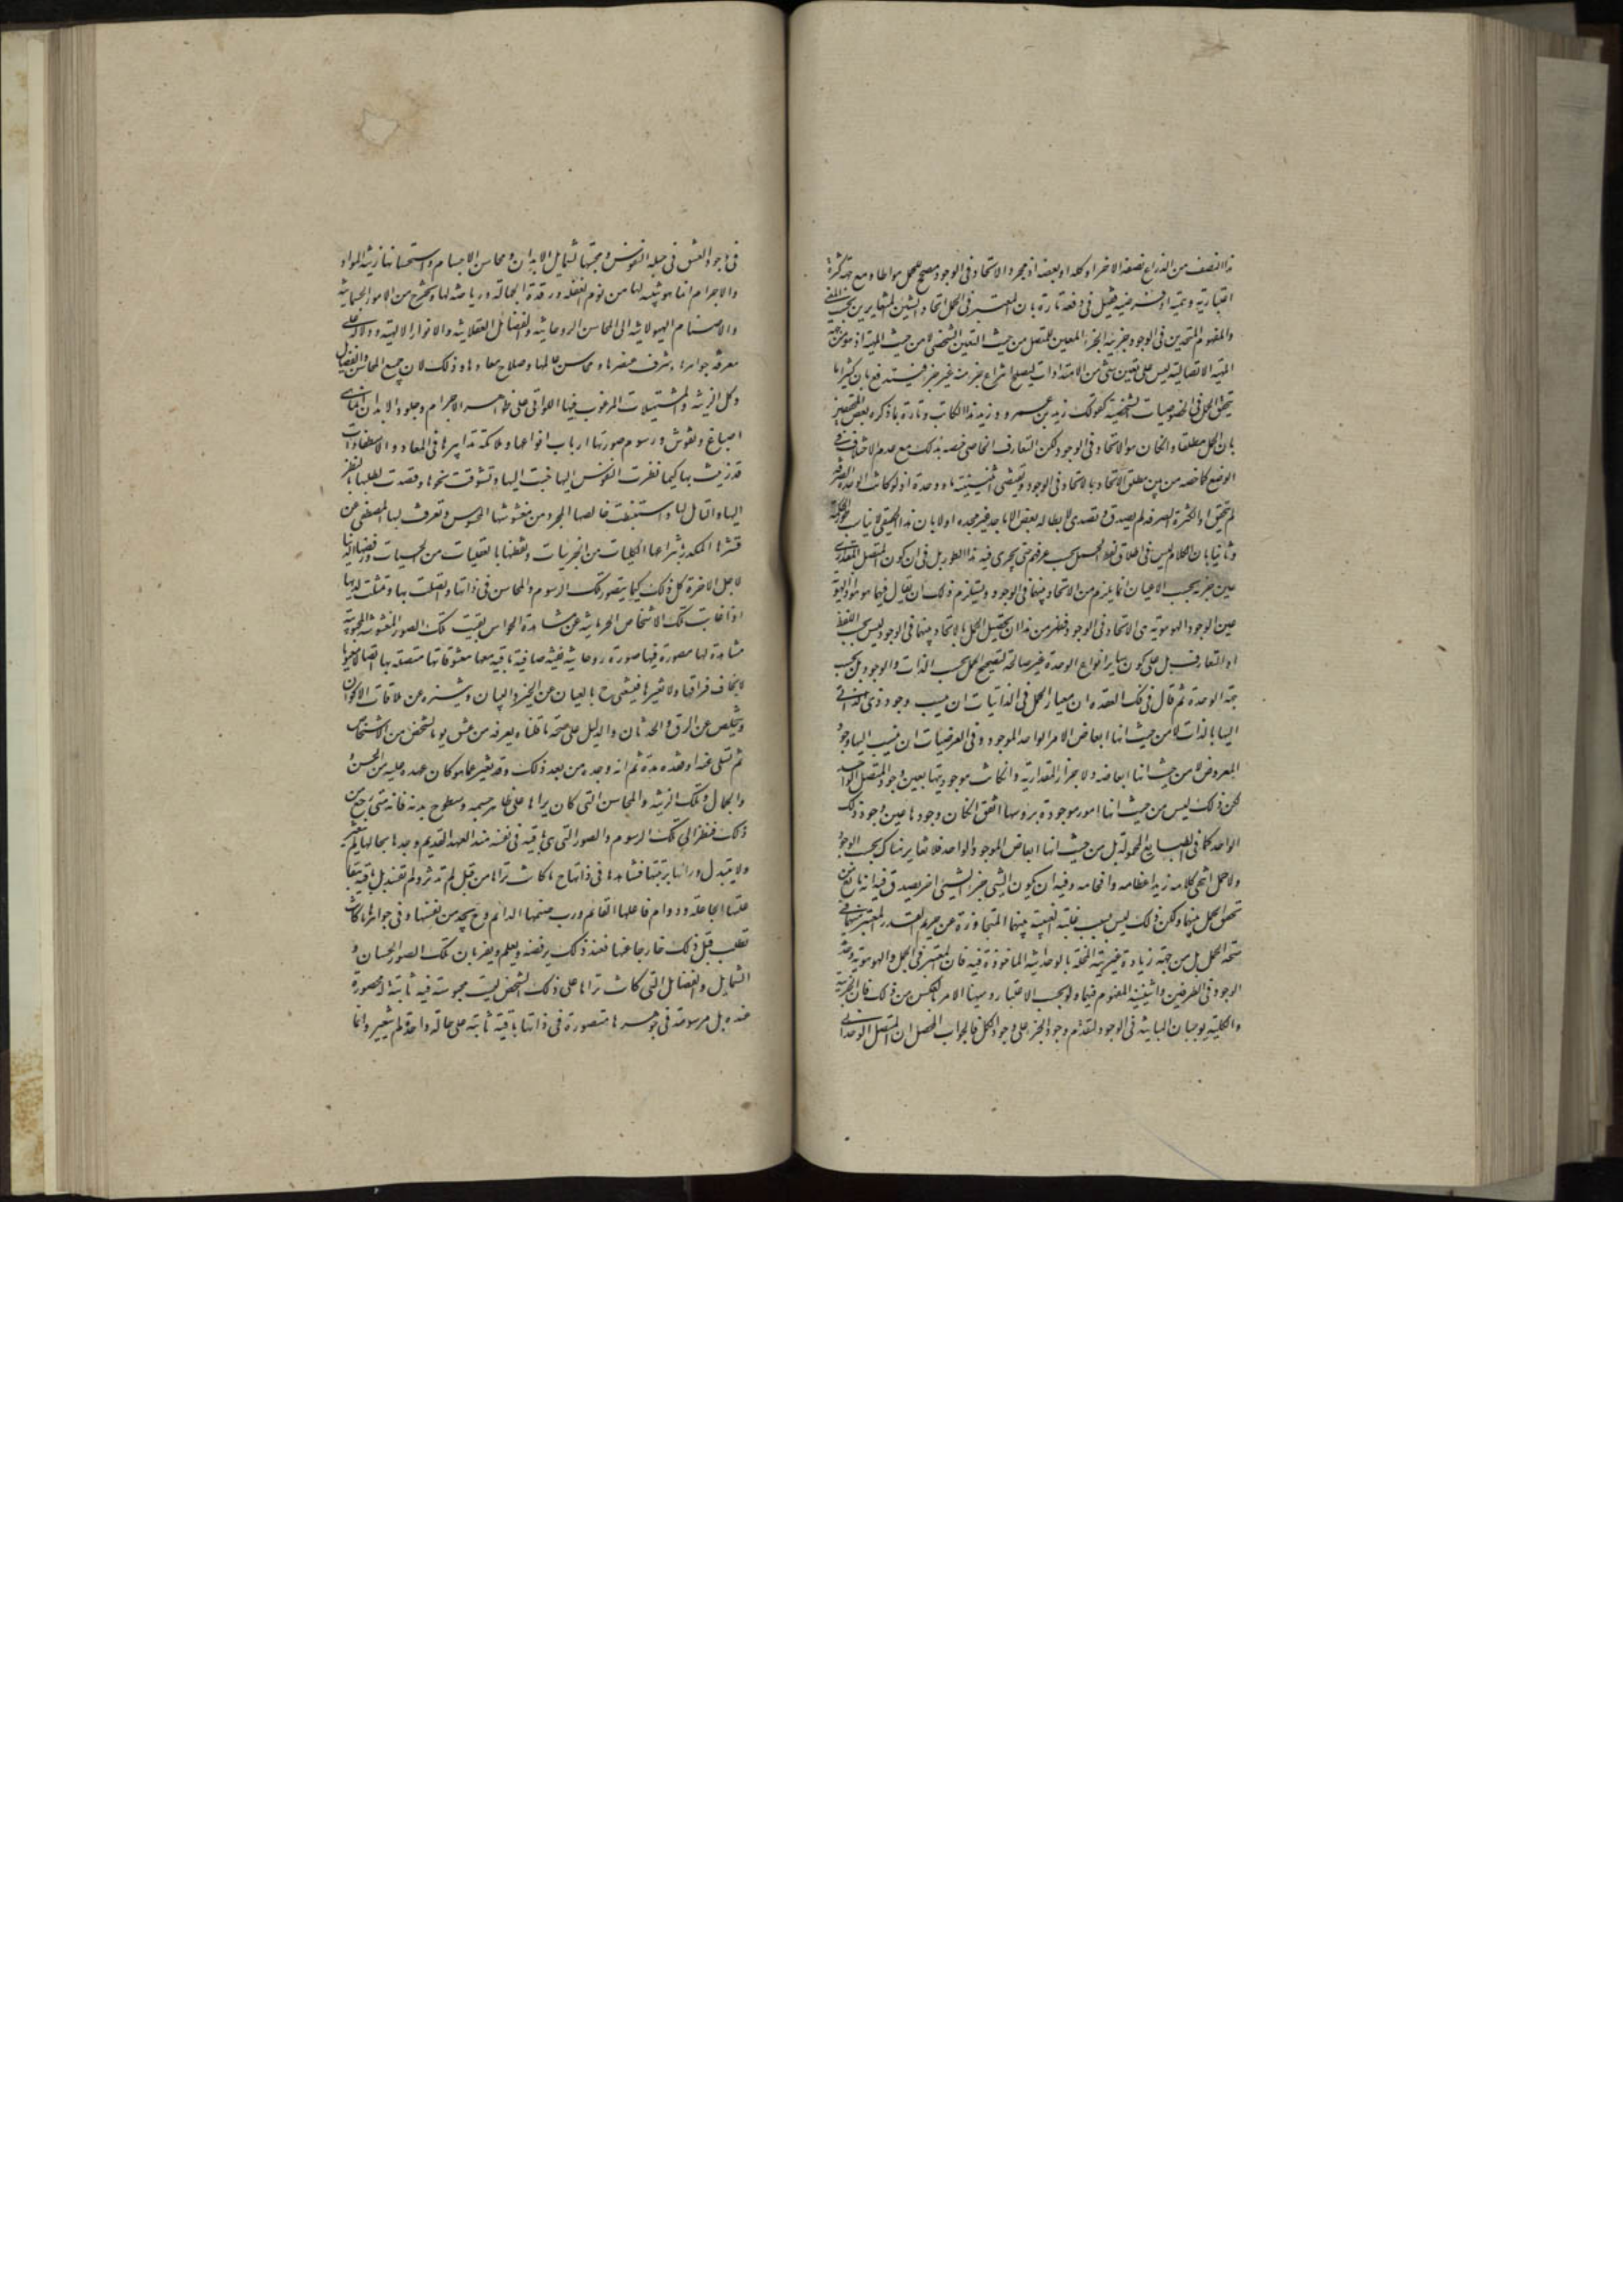 هذا النصف من الذراع نصفه الاخر او كله او بعضه اذ مجرد الاتحاد فى الوجود مصحح للحمل مواطاه مع جهة كثرة
اعتبارية وهمية او فرضية فقيل فى دفعه تارة بان المعتبر فى الحمل اتحاد الشيئين المتغايرين بحسب المعنى
والمفهوم المتحدين فى الوجود وجزئية الجزء المعين للمتصل من حيث التعين الشخصى لا من حيث المهية اذ
المهية الاتصالية ليس على تعين شئ من الامتدادات ليصلح انتزاع جزء منه غير جزء فيندفع بان كثيرا ما
يتحقق الحمل فى الخصوصيات الشخصية كقولك زيد بن عمرو و زيد هذا الكاتب وتارة بما ذكره بعض
بان الحمل مطلقا وان كان هو الاتحاد فى الوجود لكن التعارف الخاصى خصه بذلك مع عدم الاختلاف فى
الوضع كما خصه من بين مطلق الاتحاد بالاتحاد فى الوجود ويقتضى اثنينية ما ووحدة ما اذ لو كانت الوحدة الصرفة
لم يتحقق او الكثرة الصرفة لم يصدق و تصدى لابطاله بعض الاماجد غير مجده اولا بان هذا الحقيقى لا يناسب
وثانيا بان الكلام ليس فى اطلاق لفظ الحمل بحسب عرفهم حتى يجرى فيه هذا الطور بل فى ان كون المتصل المقدارى
عين جزئه بحسب الاعيان انما يلزم من الاتحاد بينهما فى الوجود ويستلزم ذلك ان يقال فيهما هو هو
عين الوجود الهوهوية هى الاتحاد فى الوجود فظهر من هذا ان تحصيل الحمل بالاتحاد بينهما فى الوجود ليس بحسب اللفظ
او التعارف بل على كون ساير انواع الوحدة غير صالحة لتصحيح الحمل بحسب الذات والوجود بل بحسب
جهة الوحدة ثم قال فى فك العقدة ان معيار الحمل فى الذاتيات ان ينسب وجود ذى الذاتى
اليها بالذات لا من حيث انها ابعاض الامر الواحد الموجود و فى العرضيات ان ينسب اليها وجود
المعروض لا من حيث انها ابعاضه والاجزاء المقدارية وان كانت موجوديتها بعين وجود المتصل الواحد
لكن ذلك ليس من حيث انها امور موجودة برءوسها اتفق ان كان وجودها عين وجود ذلك
الواحد كما فى الطبايع المحمولة بل من حيث انها ابعاض الموجود الواحد فلا تغاير هناك بحسب الوجود
ولا حمل انتهى كلامه زيد اعظامه وافخامه وفيه ان يكون الشئ جزء الشئ اخر يصدق فيه انه
تحقق الحمل بينهما ولكن ذلك ليس بسبب غلبة الغيرية بينهما المتجاوزة عن حريم القدر المعتبر منها فى
صحة الحمل بل من جهة زيادة غيرية المخلة بالوحدانية الماخوذة فيه فان المعتبر فى الحمل والهوهوية وحدة
الوجود فى الطرفين واثنينية المفهوم فيهما ولو بحسب الاعتبار و ههنا الامر بالعكس من ذلك فان الجزئية
والكلية يوجبان المباينة فى الوجود لتقدم وجود الجزء على وجود الكل فالجواب المحصل ان المتصل الوحدانى
فى وجود العشق فى جبلة النفوس ومحبتها لشمايل الابدان ومحاسن الاجسام واستحسانها زينة المواد
والاجرام انما هو تنبيه لها من نوم الغفلة ورقدة الجهالة ورياضة لها وتخريج من الامور الجسمانية
والاصنام الهيولانية الى المحاسن الروحانية والفضائل العقلانية والانوار الالهية ودلالة على
معرفة جواهرها وشرف عنصرها و محاسن عالمها وصلاح معادها وذلك لان جميع المحاسن والفضايل
وكل الزينة والمشتهيات المرغوب فيها اللواتى على ظواهر الاجرام وجلود الابدان انما هى
اصباغ ونقوش ورسوم صورتها ارباب انواعها وملائكة تدابيرها فى المعاد
قد زينت بها كيما نظرت النفوس اليها حنت اليها وتشوقت نحوها وقصدت لطلبها بالنظر
اليها والتامل لها واستنبطت خالصها المجرد من مغشوشها المحسوس وتعرف لبها المصفى عن
قشرها المكدر بانتزاعها الكليات من الجزئيات وتفطنها بالعقليات من الحسيات ورفضها الدنيا
لاجل الاخرة كل ذلك كيما يتصور تلك الرسوم والمحاسن فى ذاتها واتصلت بها وتمثلت لديها
اذا غابت تلك الاشخاص الجرمانية عن مشاهدة الحواس بقيت تلك الصور المعشوقة المحبوبة
مشاهدة لها مصورة فيها صورة روحانية نقية صافية باقية معها معشوقاتها متصلة بها اتصالا معنويا
لا يخاف فراقها ولا تغيرها فيستغنى ح بالعيان عن الخبر والبيان ويتنزه عن ملاقات الالوان
ويتخلص عن الرق والحدثان والدليل على صحة ما قلناه يعرفه من عشق يوما لشخص من الاشخاص
ثم تسلى عنه او فقده مدة ثم انه وجده من بعد ذلك وقد تغير عما هو كان عهده عليه من الحسن و
والجمال و تلك الزينة والمحاسن التى كان يراها على ظاهر جسمه وسطوح بدنه فانه متى رجع من
ذلك فنظر الى تلك الرسوم والصور التى هى باقية فى نفسه منذ العهد القديم وجدها بحالها لم يتغير
ولا يتبدل وراها برمتها فشاهدها فى ذاتها ح ما كانت تراها من قبل لم تدثر ولم تفسد بل باقية ببقاء
علتها الجاعلة ودوام فاعلها القائم ورب صنمها الدائم وح يجد من نفسها و فى جواهرها ما كانت
تطلب قبل ذلك خارجا عنها فعند ذلك يرفضه ويعلم ويقر بان تلك الصور الحسان و
الشمايل والفضايل التى كانت تراها على ذلك الشخص ليست محبوسة فيه ثابتة له محصورة
عنده بل مرسومة فى جوهرها متصورة فى ذاتها باقية ثابتة على حالة واحدة لم يتغير وانما